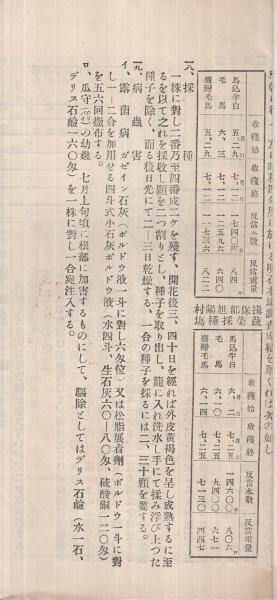 收穫始
收穫終
反當本數
反當重量
馬込半白
五、二九
七、一二
一四〇四〇
八四〇
毛馬
五、二九
七、一二
臺灣毛馬
五、二九
七、一二
一一七三六
八二二
收穫始
收穫終
反當本數
反當重量
馬込半白
六、二
七、二五
一四六〇〇
八〇六
毛馬
六、一〇
七、二五
九四〇〇
六七一
臺灣毛馬
六、一四
七、二五
七一三〇
四四七
一八、採種
一株に對し二番乃至四番成二ヶを殘す、開花後三、四十日を經れば外皮黃褐色を呈し成熟するに至
るを以て之れを採收し顆を二つ割りとし、種子を取り出し、籠に入れ洗水し手にて揉み浮び上つた
種子を除く、而る後日光にて二―三日乾燥する、一合の種子を採るには二、三十顆を要する。
一九、病蟲害
イ、露菌病 ガゼイン石灰(ボルドウ液一斗に對し六匁位)又は松脂展着劑(ボルドウ一斗に對
し一―二合を加用せる四斗式小石灰ボルドウ液(水四斗、生石灰六〇―八〇匁、硫酸銅一二〇匁)
を五六回撒布する。
ロ、瓜守(ウリバヘ)の幼蟲 七月上旬頃に根部に加害するものにして、驅除としてはデリス石鹼(水一石、
デリス石鹼一六〇匁)を一株に對し一合宛注入する。